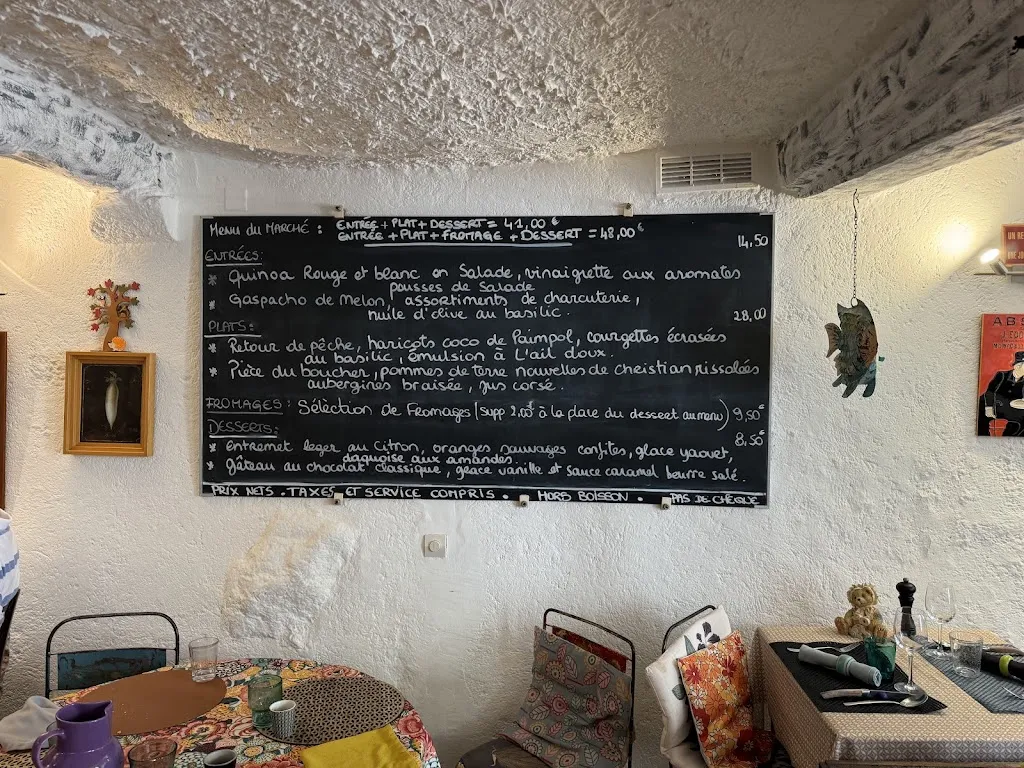 Menu du MARCHÉ : ENTRÉE + PLAT + DESSERT = 41,00 €
ENTRÉE + PLAT + FROMAGE + DESSERT = 48,00 €
14,50
ENTRÉES:
* Quinoa Rouge et blanc en Salade, vinaigrette aux aromates
pousses de Salade
* Gaspacho de Melon, assortiments de charcuterie,
huile d'olive au basilic.
28,00
PLATS:
* Retour de pêche, haricots coco de Paimpol, courgettes écrasées
au basilic, émulsion à L'ail doux.
* Pièce du boucher, pommes de terre nouvelles de christian rissolées
aubergines braisée, jus corsé.
FROMAGES: Sélèction de Fromages (supp 2,00 à la place du dessert au menu) 9,50€
DESSERTS: 8,50€
* Entremet leger au Citron, oranges sauvages confites, glace yaourt,
daquoise aux amandes.
* Gâteau au chocolat classique, glace vanille et sauce caramel beurre salé.
PRIX NETS . TAXES ET SERVICE COMPRIS . HORS BOISSON . PAS DE CHÈQUE
UN RE
ABS